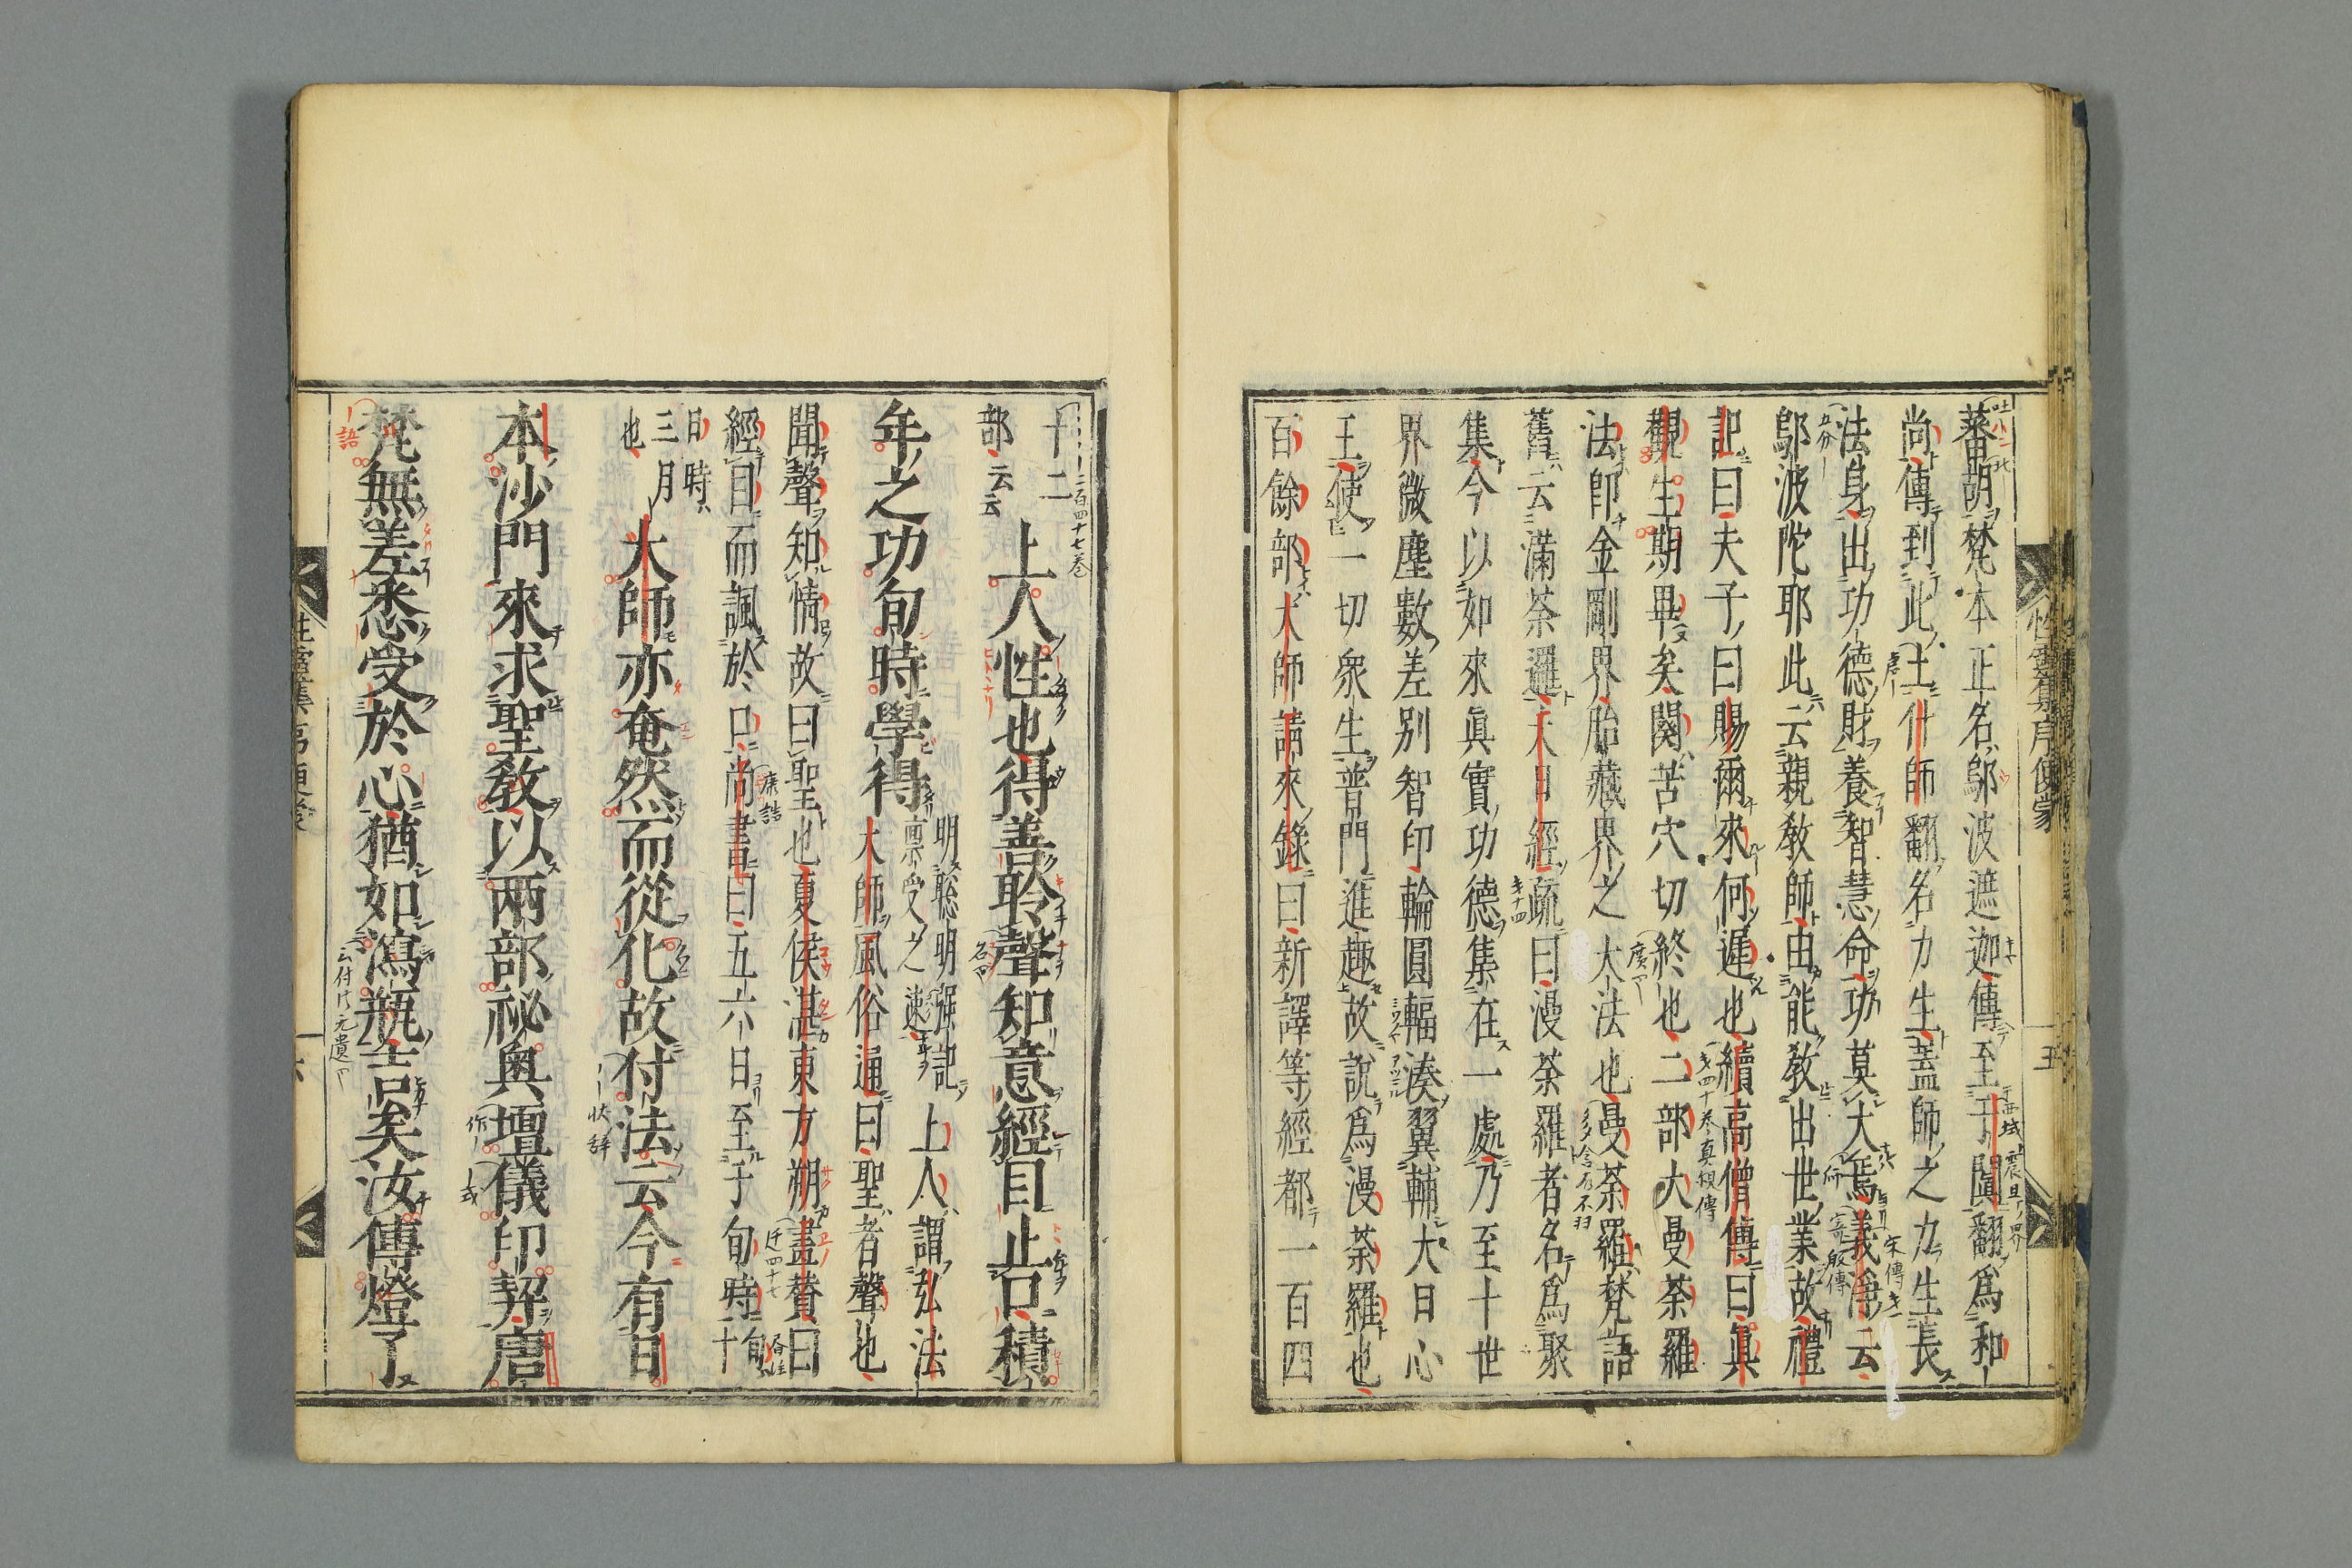 蕃胡梵本正名鄔波遮迦傳至于闐翻爲和
尚傳到此土什師翻名力生蓋師之力生長
法身出功德財養智慧命功莫大焉義淨云
鄔波陀耶此云親教師由能教出世業故禮
記曰夫子曰賜爾來何遲也續高僧傳曰眞
觀生期畢矣関苦穴切終也二部大曼荼羅
法卽金剛界胎藏界之大法也曼荼羅梵語
舊云滿荼邏大日經疏曰漫荼羅者名爲聚
集今以如來眞實功德集在一處乃至十世
界微塵數差别智印輪圓輻湊翼輔大日心
王使一切衆生普門進趣故說爲漫荼羅也
百餘部大師請來錄曰新譯等經都一百四
性靈集序便蒙
五
十二
部云云
上人性也得善聆聲知意經目止口積
年之功旬時學得
明聰明强記
稟受之速
上人謂弘法
大師風俗通曰聖者聲也
聞聲知情故曰聖也夏侯湛東方朔畫賛曰
經目而諷於口尚書曰五六日至于旬時
旬十
日時
三月
也
大師亦奄然而從化故付法云今有日
本沙門來求聖教以兩部祕奥壇儀印契唐
梵無差悉受於心猶如瀉瓶吉矣汝傳燈了